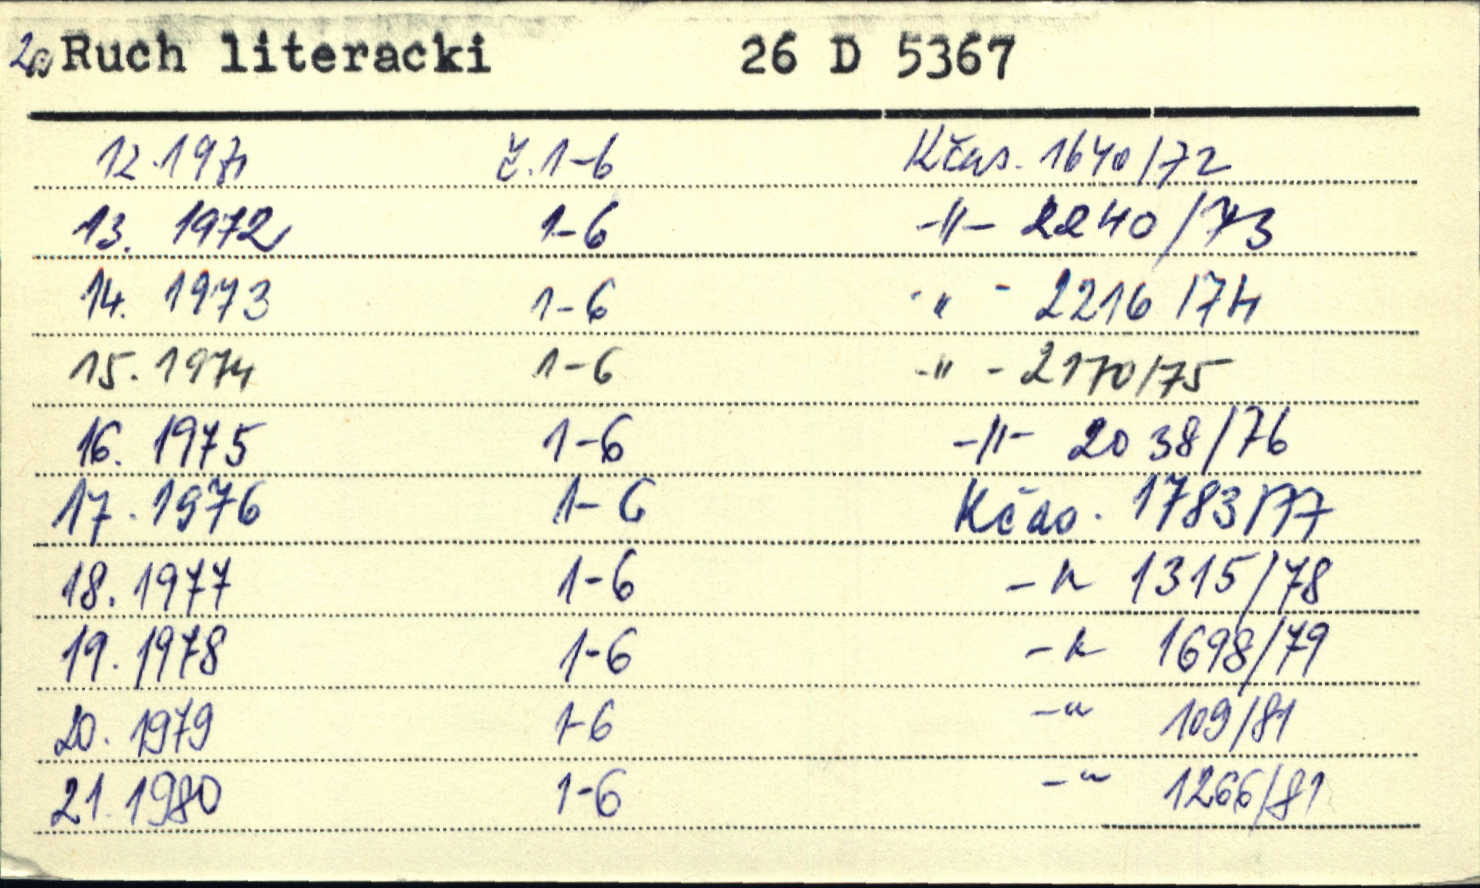 Ruch literacki 26 D 5367
12.1971 č.1-6 Kčas. 1640/72
13. 1972 1-6 -"- 2240/73
14. 1973 1-6 -"- 2216/74
15. 1974 1-6 -"- 2170/75
16. 1975 1-6 -"- 2038/76
17. 1976 1-6 Kčas. 1783/77
18. 1977 1-6 -"- 1315/78
19. 1978 1-6 -"- 1698/79
20. 1979 1-6 -"- 109/81
21. 1980 1-6 -"- 1266/81